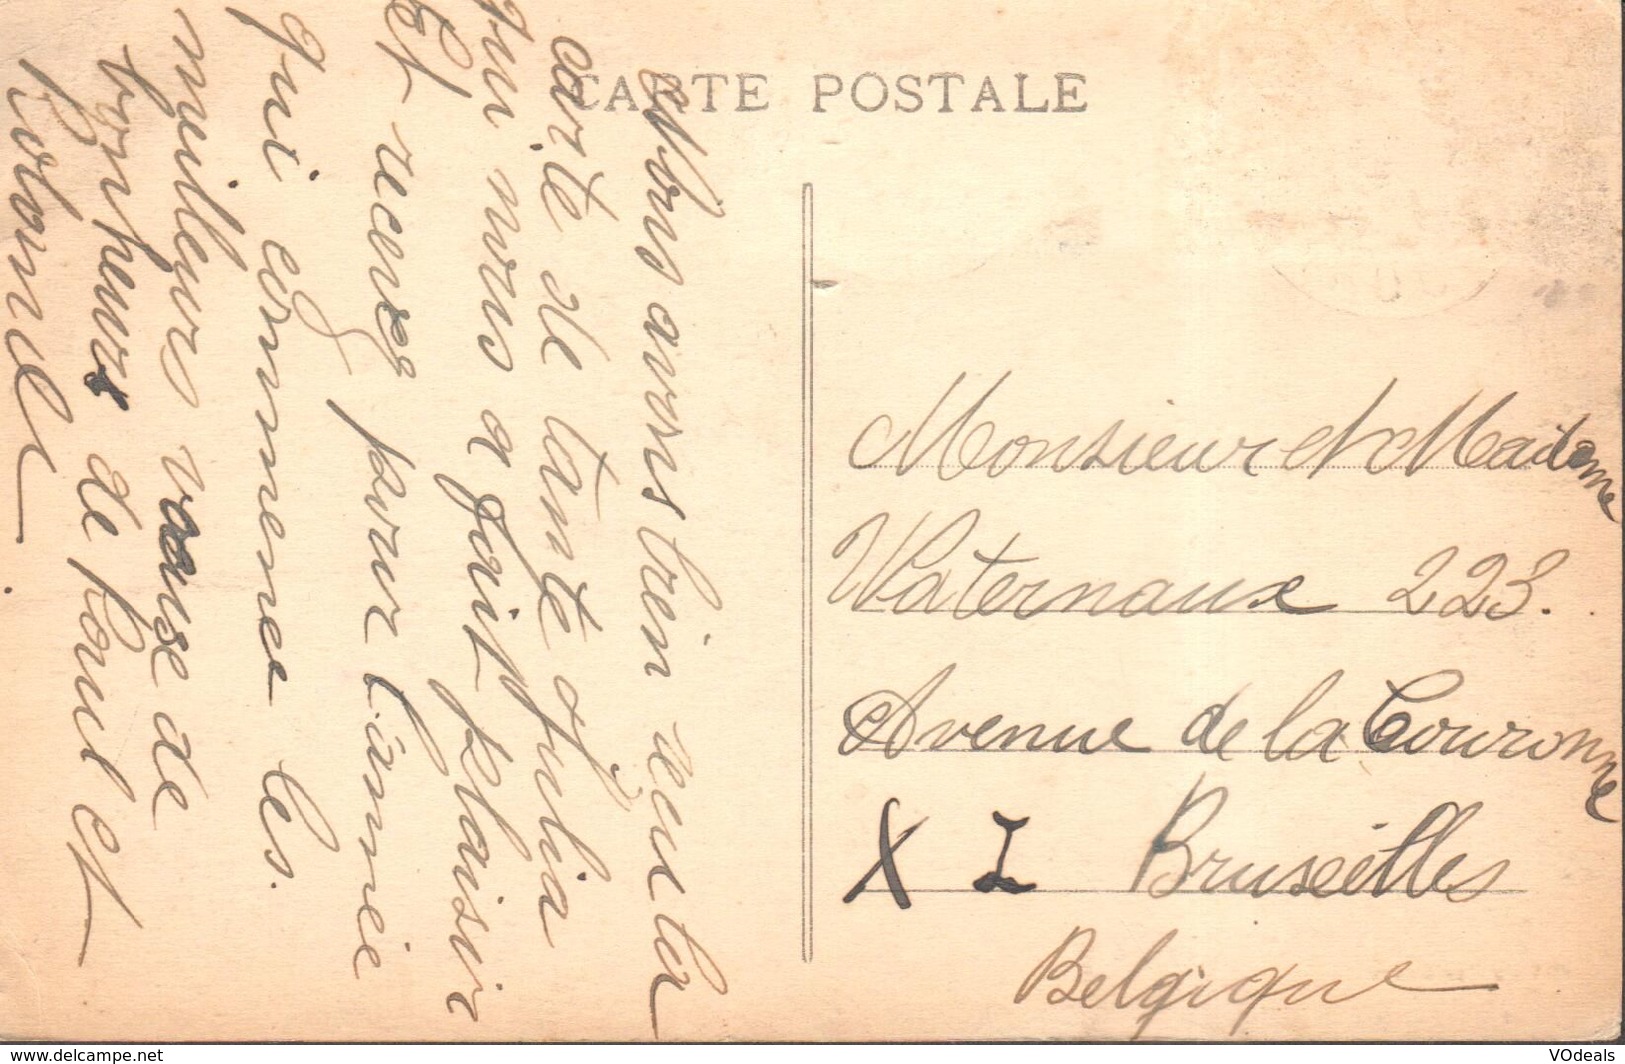 CARTE POSTALE
Nous avons bien reçu ta
carte de tante Julia
qui nous a fait plaisir
Et recevez pour l'année
qui commence les
meilleurs vause de
bonheurs de Poul et
Monsieur et Madame
Waternaux 223.
Avenue de la Couronne
X L Bruxelles
Belgique
www.delcampe.net
VOdeals